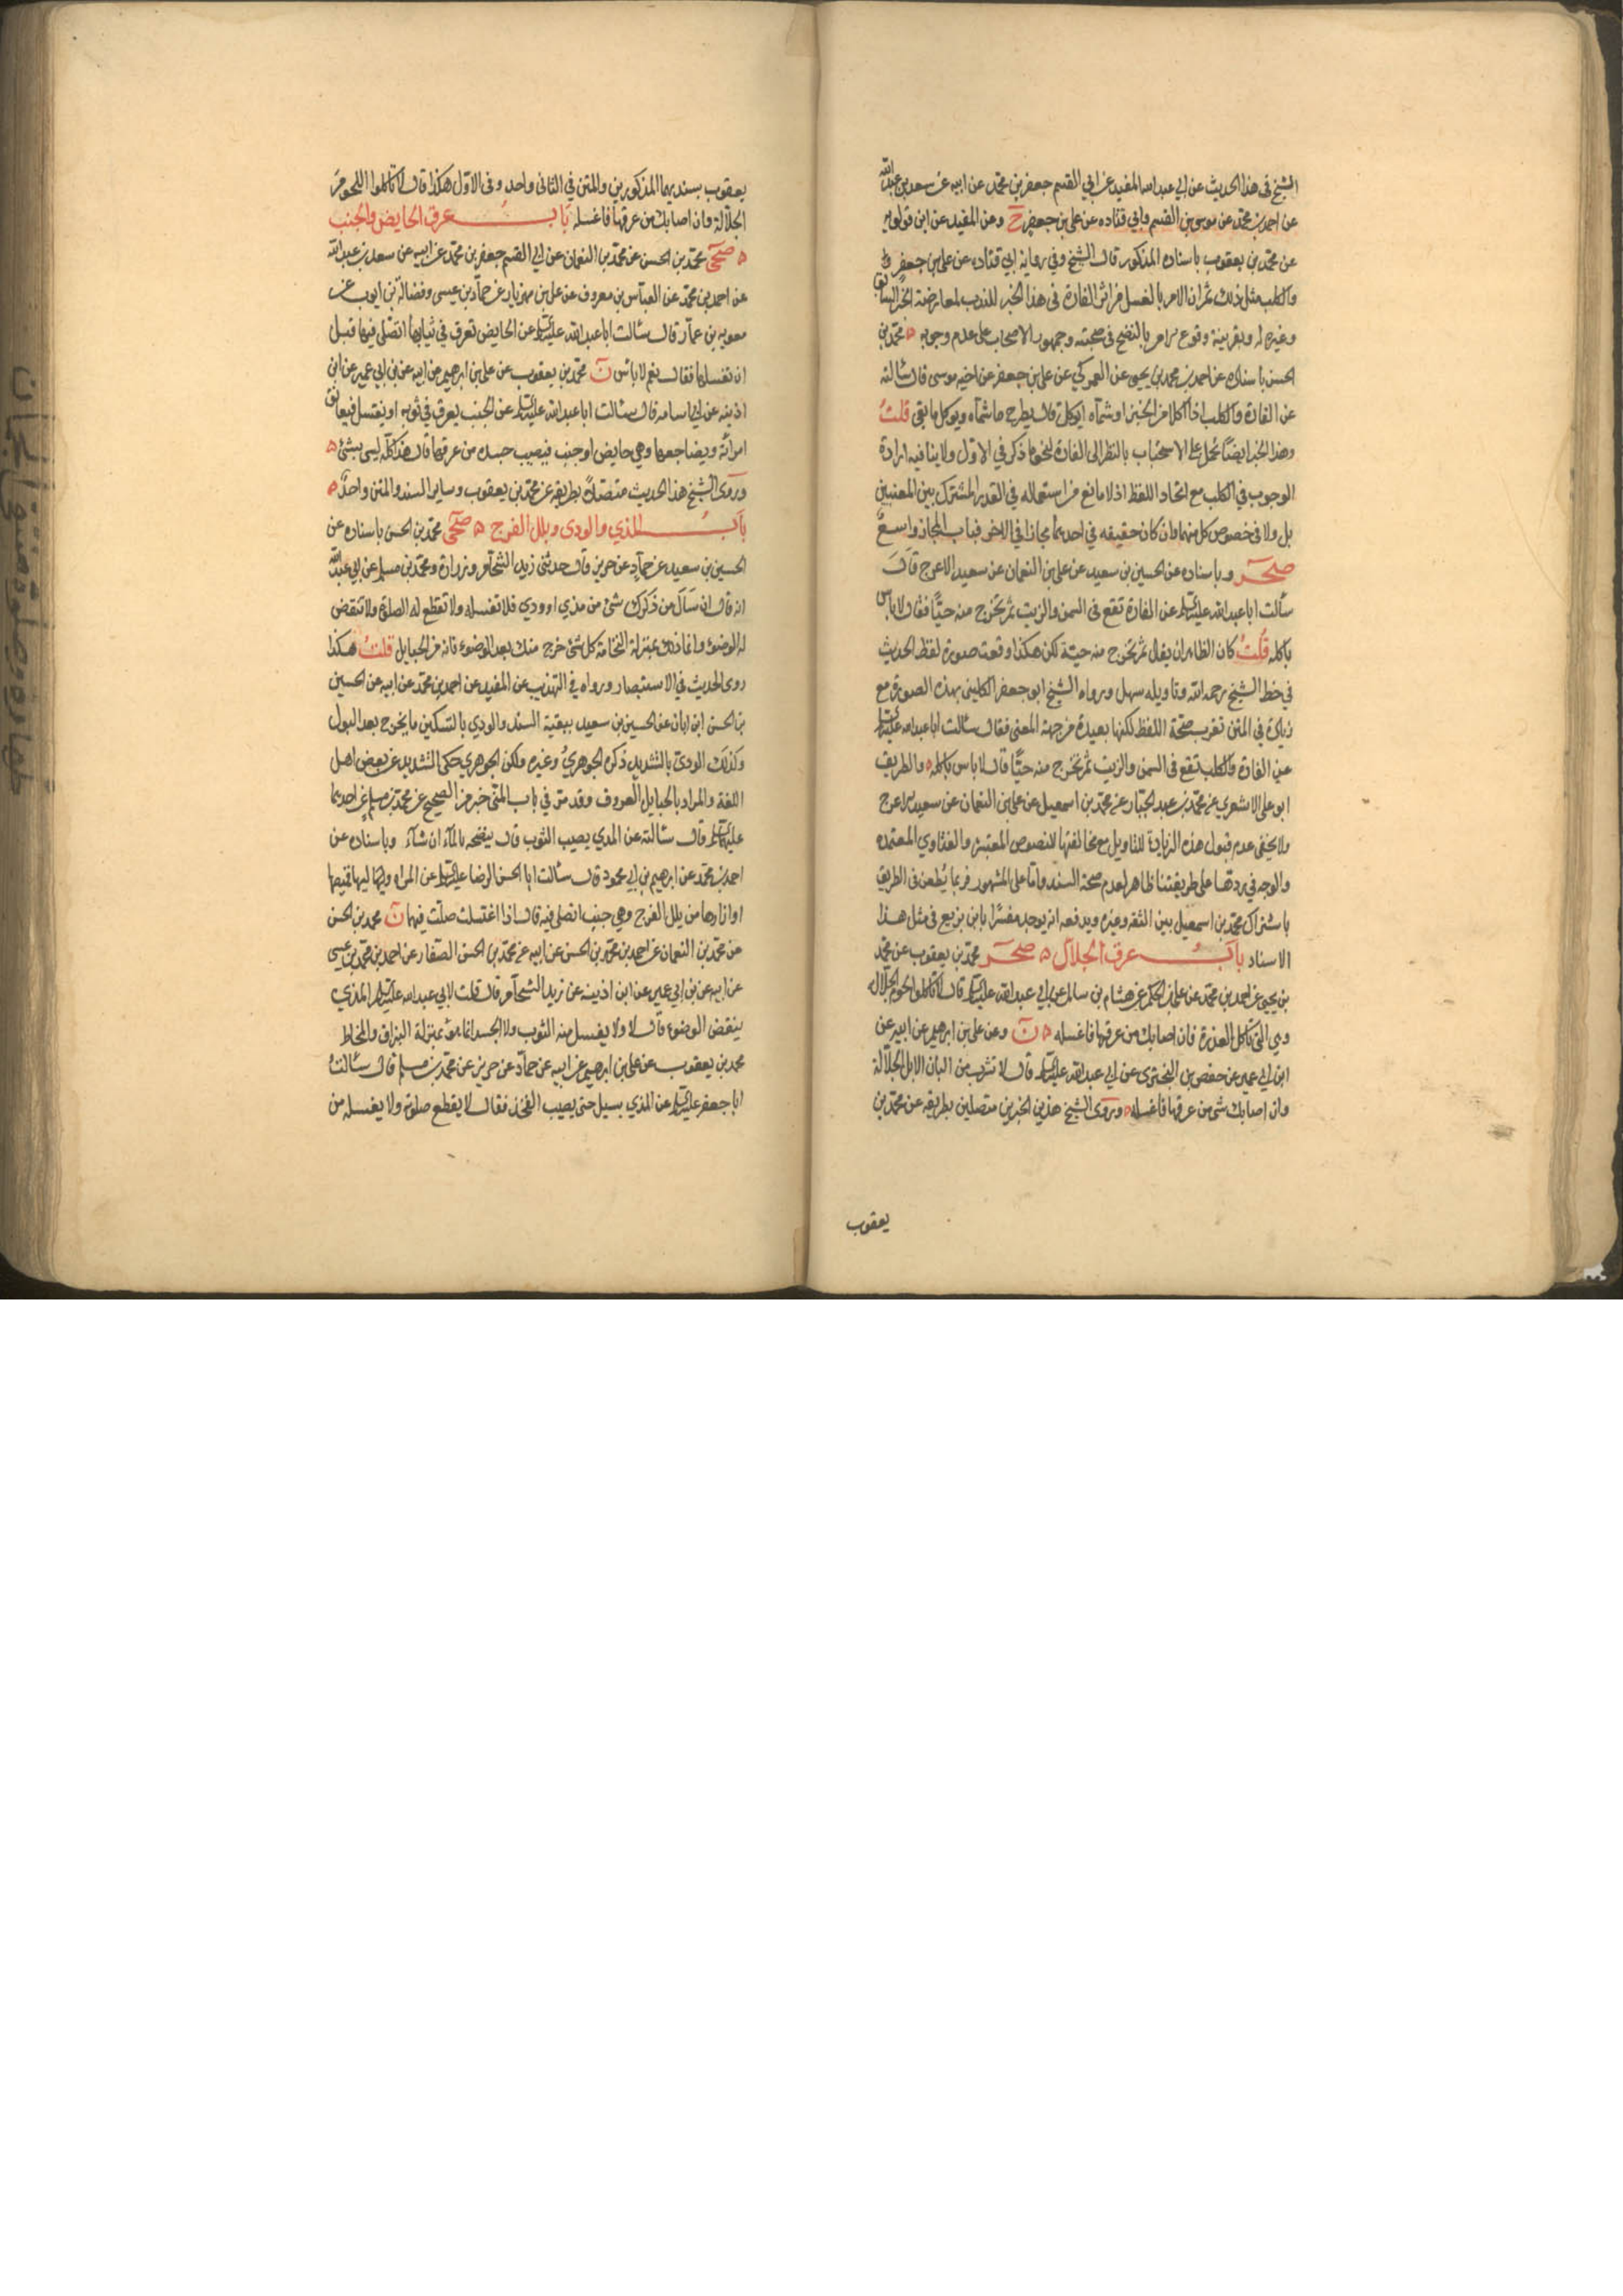 الشيخ في هذا الحديث عن ابي عبد الله المفيد عن ابي القسم جعفر بن محمد عن ابيه عن سعد بن عبد الله
عن احمد بن محمد عن موسى بن القسم وابي قتاده عن علي بن جعفر ح وعن المفيد عن ابن قولويه
عن محمد بن يعقوب باسناده المذكور قال الشيخ وفي رواية ابي قتاده عن علي بن جعفر
والكلب مثل ذلك ثم ان الامر بالغسل من اثر الفارة في هذا الخبر للندب لمعارضة الخبر السابق
وغيره له وبقرينة وقوع الامر بالنضح في صحبته وجمهور الاصحاب على عدم وجوبه محمد بن
الحسن باسناده عن احمد بن محمد بن يحيى عن العمركي عن علي بن جعفر عن اخيه موسى قال سالته
عن الفارة والكلب اذا اكلا من الخبز او شماه ايوكل قال يطرح ما شماه ويوكل ما بقي قلت
وهذا الخبر ايضا يحمل على الاستحباب بالنظر الى الفارة لنحو ما ذكر في الاول ولا ينافيه ارادة
الوجوب في الكلب مع اتحاد اللفظ اذ لا مانع من استعماله في القدر المشترك بين المعنيين
بل ولا في خصوص كل منهما وان كان حقيقه في احدهما مجازا في الاخر فباب المجاز واسع
صحر وباسناده عن الحسين بن سعيد عن علي بن النعمان عن سعيد الاعرج قال
سالت ابا عبد الله عليه السلام عن الفارة تقع في السمن والزيت ثم تخرج منه حيا فقال لا باس
باكله قلت كان الظاهر ان يقال ثم تخرج منه حية لكن هكذا وقعت صورة لفظ الحديث
في خط الشيخ رحمه الله وتاويله سهل ورواه الشيخ ابو جعفر الكليني بهذه الصورة مع
زيادة في المتن تقرب صحة اللفظ لكنها بعيدة من جهة المعنى فقال سالت ابا عبد الله عليه السلام
عن الفارة والكلب تقع في السمن والزيت ثم يخرج منه حيا قال لا باس باكله والطريق
ابو علي الاشعري عن محمد بن عبد الجبار عن محمد بن اسمعيل عن علي بن النعمان عن سعيد الاعرج
ولا يخفى عدم قبول هذه الزيادة للتاويل مع مخالفتها للنصوص المعتبرة والفتاوي المعتمده
والوجه في ردها على طريقتنا ظاهر لعدم صحة السند واما على المشهور فربما يطعن في الطريق
باشتراك محمد بن اسمعيل بين الثقه وغيره ويدفعه انه يوجد مفسرا بابن بزيع في مثل هذا
الاسناد باب عرق الجلال صحر محمد بن يعقوب عن محمد
بن يحيى عن احمد بن محمد عن علي بن الحكم عن هشام بن سالم عن ابي عبد الله عليه السلام قال لا تاكلوا لحوم الجلاله
وهي التي تاكل العذرة فان اصابك من عرقها فاغسله ن وعن علي بن ابرهيم عن ابيه عن
ابن ابي عمير عن حفص بن البختري عن ابي عبد الله عليه السلام قال لا تشرب من البان الابل الجلالة
وان اصابك شي من عرقها فاغسله وروى الشيخ هذين الخبرين متصلين بطريقه عن محمد بن
يعقوب
يعقوب بسنديهما المذكورين والمتن في الثاني واحد وفي الاول هكذا قال لا تاكلوا اللحوم
الجلالة وان اصابك من عرقها فاغسله باب عرق الحايض والجنب
صحي محمد بن الحسن عن محمد بن النعمان عن ابي القسم جعفر بن محمد عن ابيه عن سعد بن عبد الله
عن احمد بن محمد عن العباس بن معروف عن علي بن مهزيار عن حماد بن عيسى وفضالة بن ايوب عن
معويه بن عمار قال سالت ابا عبد الله عليه السلام عن الحايض تعرق في ثيابها اتصلي فيها قبل
ان تغسلها فقال نعم لا باس ن محمد بن يعقوب عن علي بن ابرهيم عن ابيه عن ابن ابي عمير عن ابن
اذينه عن ابي اسامه قال سالت ابا عبد الله عليه السلام عن الجنب يعرق في ثوبه او يغتسل فيعانق
امراته ويضاجعها وهي حايض او جنب فيصيب جسده من عرقها قال هذا كله ليس بشئ
وروى الشيخ هذا الحديث متصلا بطريقه عن محمد بن يعقوب وساير السند والمتن واحد
باب المذي والودي وبلل الفرج صحي محمد بن الحسن باسناده عن
الحسين بن سعيد عن حماد عن حريز قال حدثني زيد الشحام وزرارة ومحمد بن مسلم عن ابي عبد الله
انه قال ان سال من ذكرك شئ من مذي او ودي فلا تغسله ولا تقطع له الصلوة ولا تنقض
له الوضوء وانما ذلك بمنزلة النخامة كل شئ خرج منك بعد الوضوء فانه من الحبايل قلت هكذا
روى الحديث في الاستبصار ورواه في التهذيب عن المفيد عن احمد بن محمد عن ابيه عن الحسين
بن الحسن ابن ابان عن الحسين بن سعيد ببقية السند والودي بالتسكين ما يخرج بعد البول
وكذلك الودي بالتشديد ذكره الجوهري وغيره ولكن الجوهري حكى التشديد عن بعض اهل
اللغة والمراد بالحبايل العروف وقد مر في باب المني خبر من الصحيح عن محمد بن مسلم عن احدهما
عليهما السلام قال سالته عن المذي يصيب الثوب قال ينضحه بالماء ان شاء وباسناده عن
احمد بن محمد عن ابرهيم بن ابي محمود قال سالت ابا الحسن الرضا عليه السلام عن المراه وليها قميصها
او ازارها من بلل الفرج وهي جنب اتصلي فيه قال اذا اغتسلت صلت فيهما ن محمد بن الحسن
عن محمد بن النعمان عن احمد بن محمد بن الحسن عن ابيه عن محمد بن الحسن الصفار عن احمد بن محمد بن عيسى
عن ابيه عن ابن ابي عمير عن ابن اذينه عن زيد الشحام قال قلت لابي عبد الله عليه السلام المذي
ينقض الوضوء قال لا ولا يغسل منه الثوب ولا الجسد انما هو بمنزلة البزاق والمخاط
محمد بن يعقوب عن علي بن ابرهيم عن ابيه عن حماد عن حريز عن محمد بن مسلم قال سالت
ابا جعفر عليه السلام عن المذي يسيل حتى يصيب الفخذ فقال لا يقطع صلوته ولا يغسله من